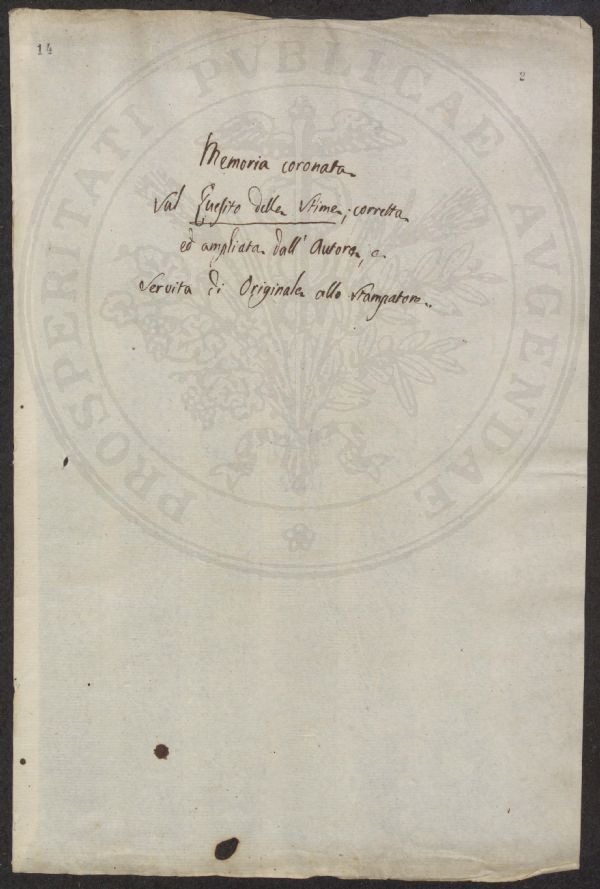 14
2
PROSPERITATI PVBLICAE AVGENDAE
Memoria coronata
sul Quesito delle Stime, corretta
ed ampliata dall' Autore, e
servita di Originale allo Stampatore.